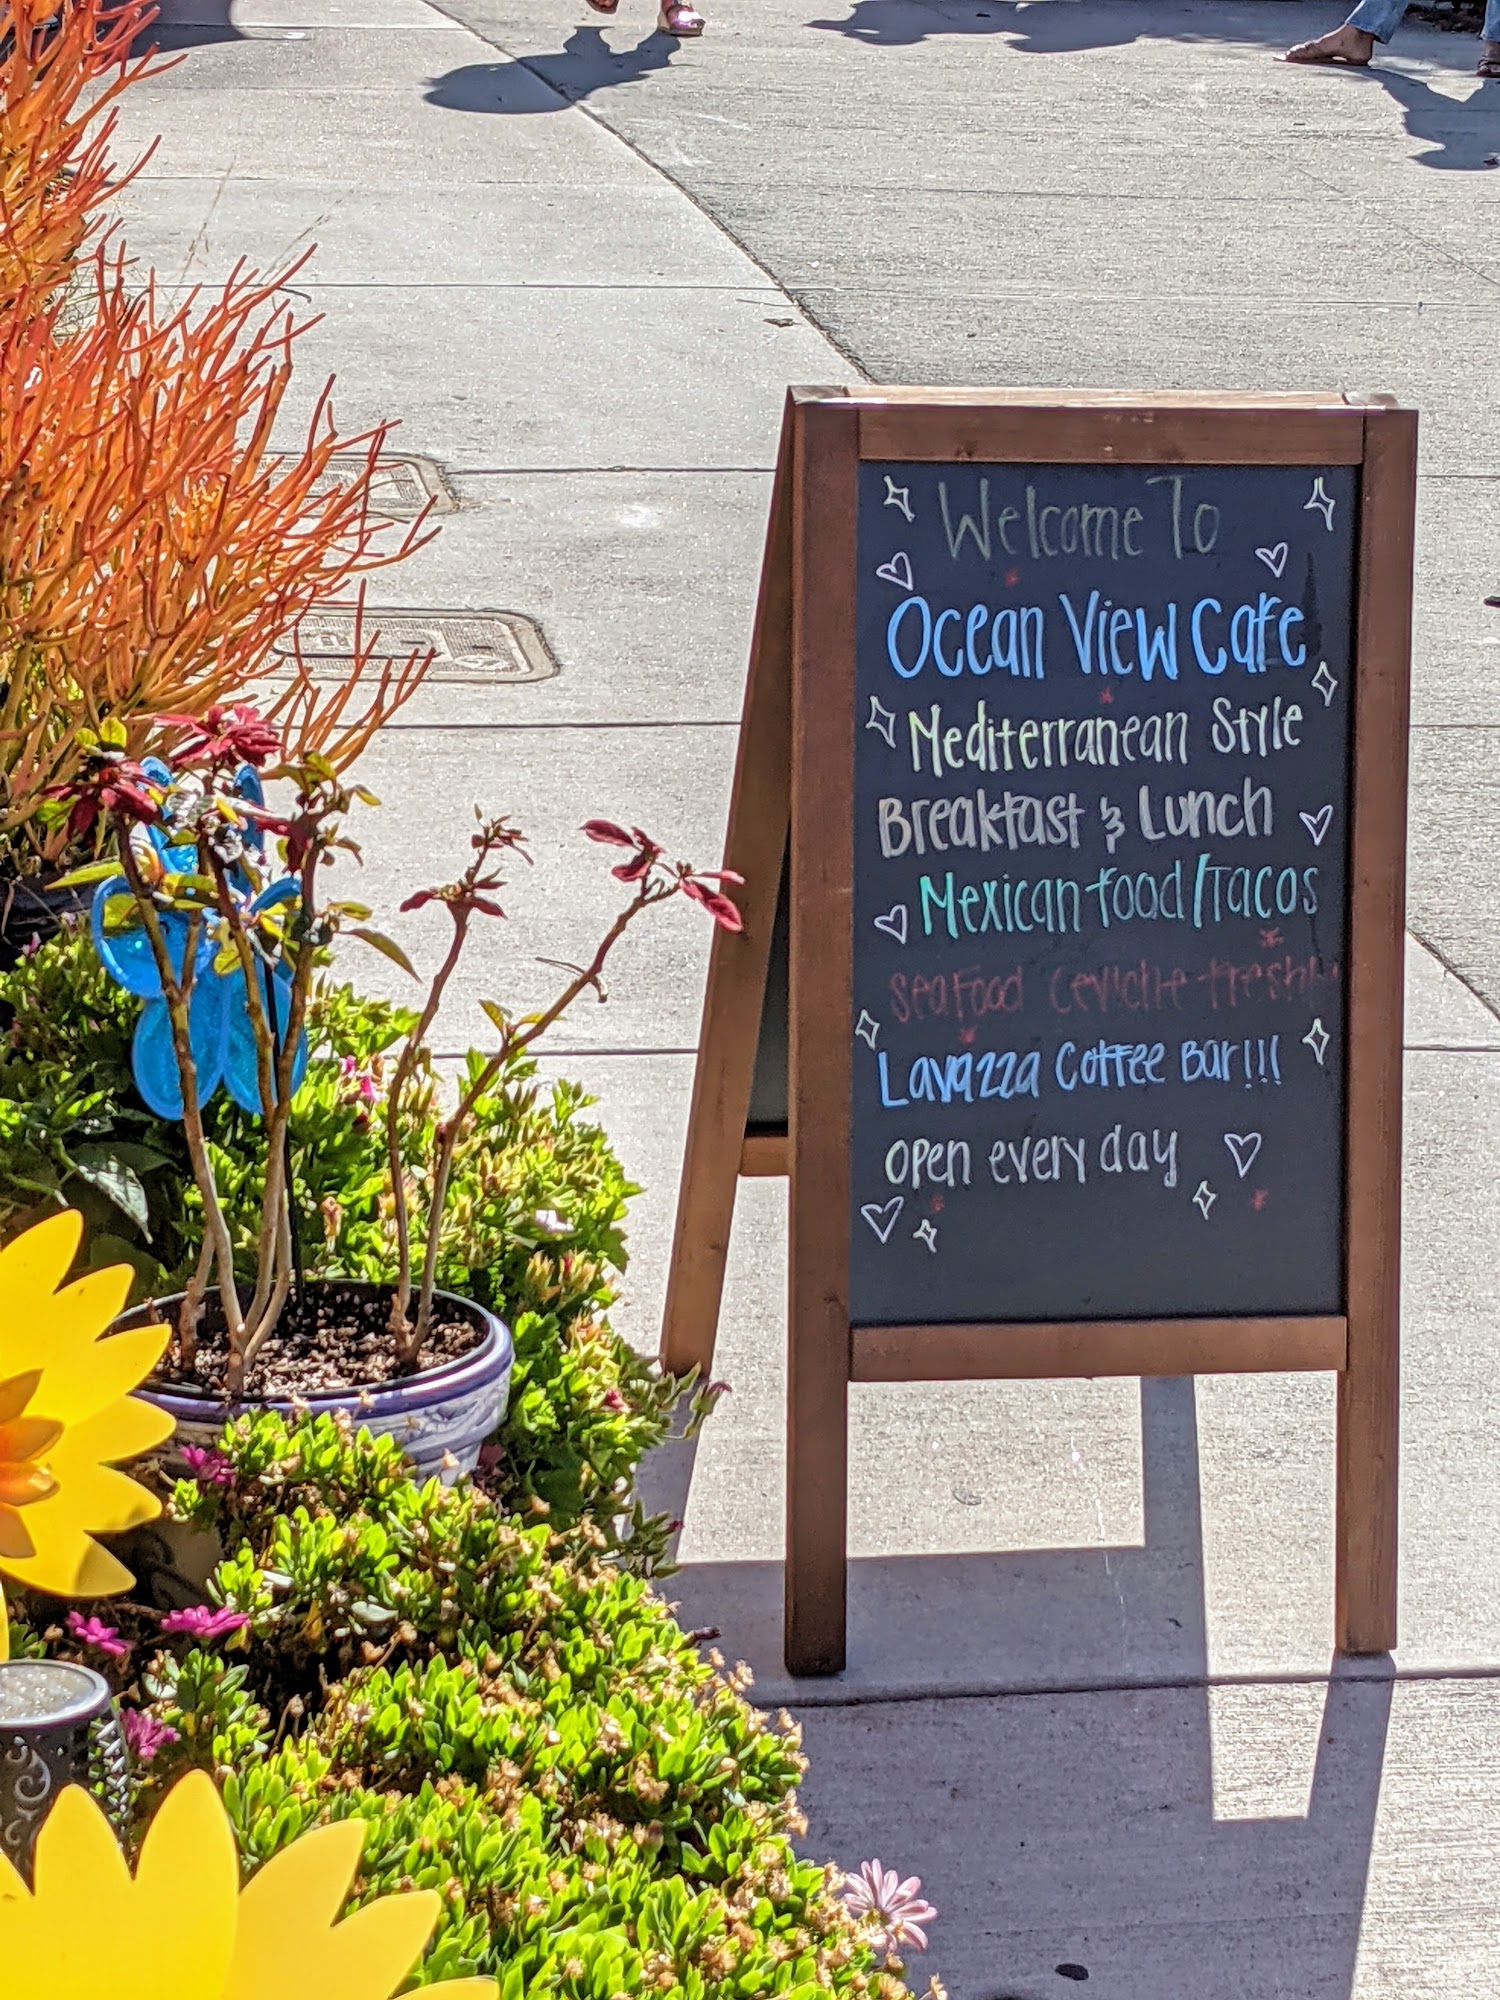 Welcome To
Ocean View Cafe
Mediterranean Style
Breakfast & Lunch
Mexican food/Tacos
Seafood Ceviche fresh!!
Lavazza Coffee Bar!!!
open every day